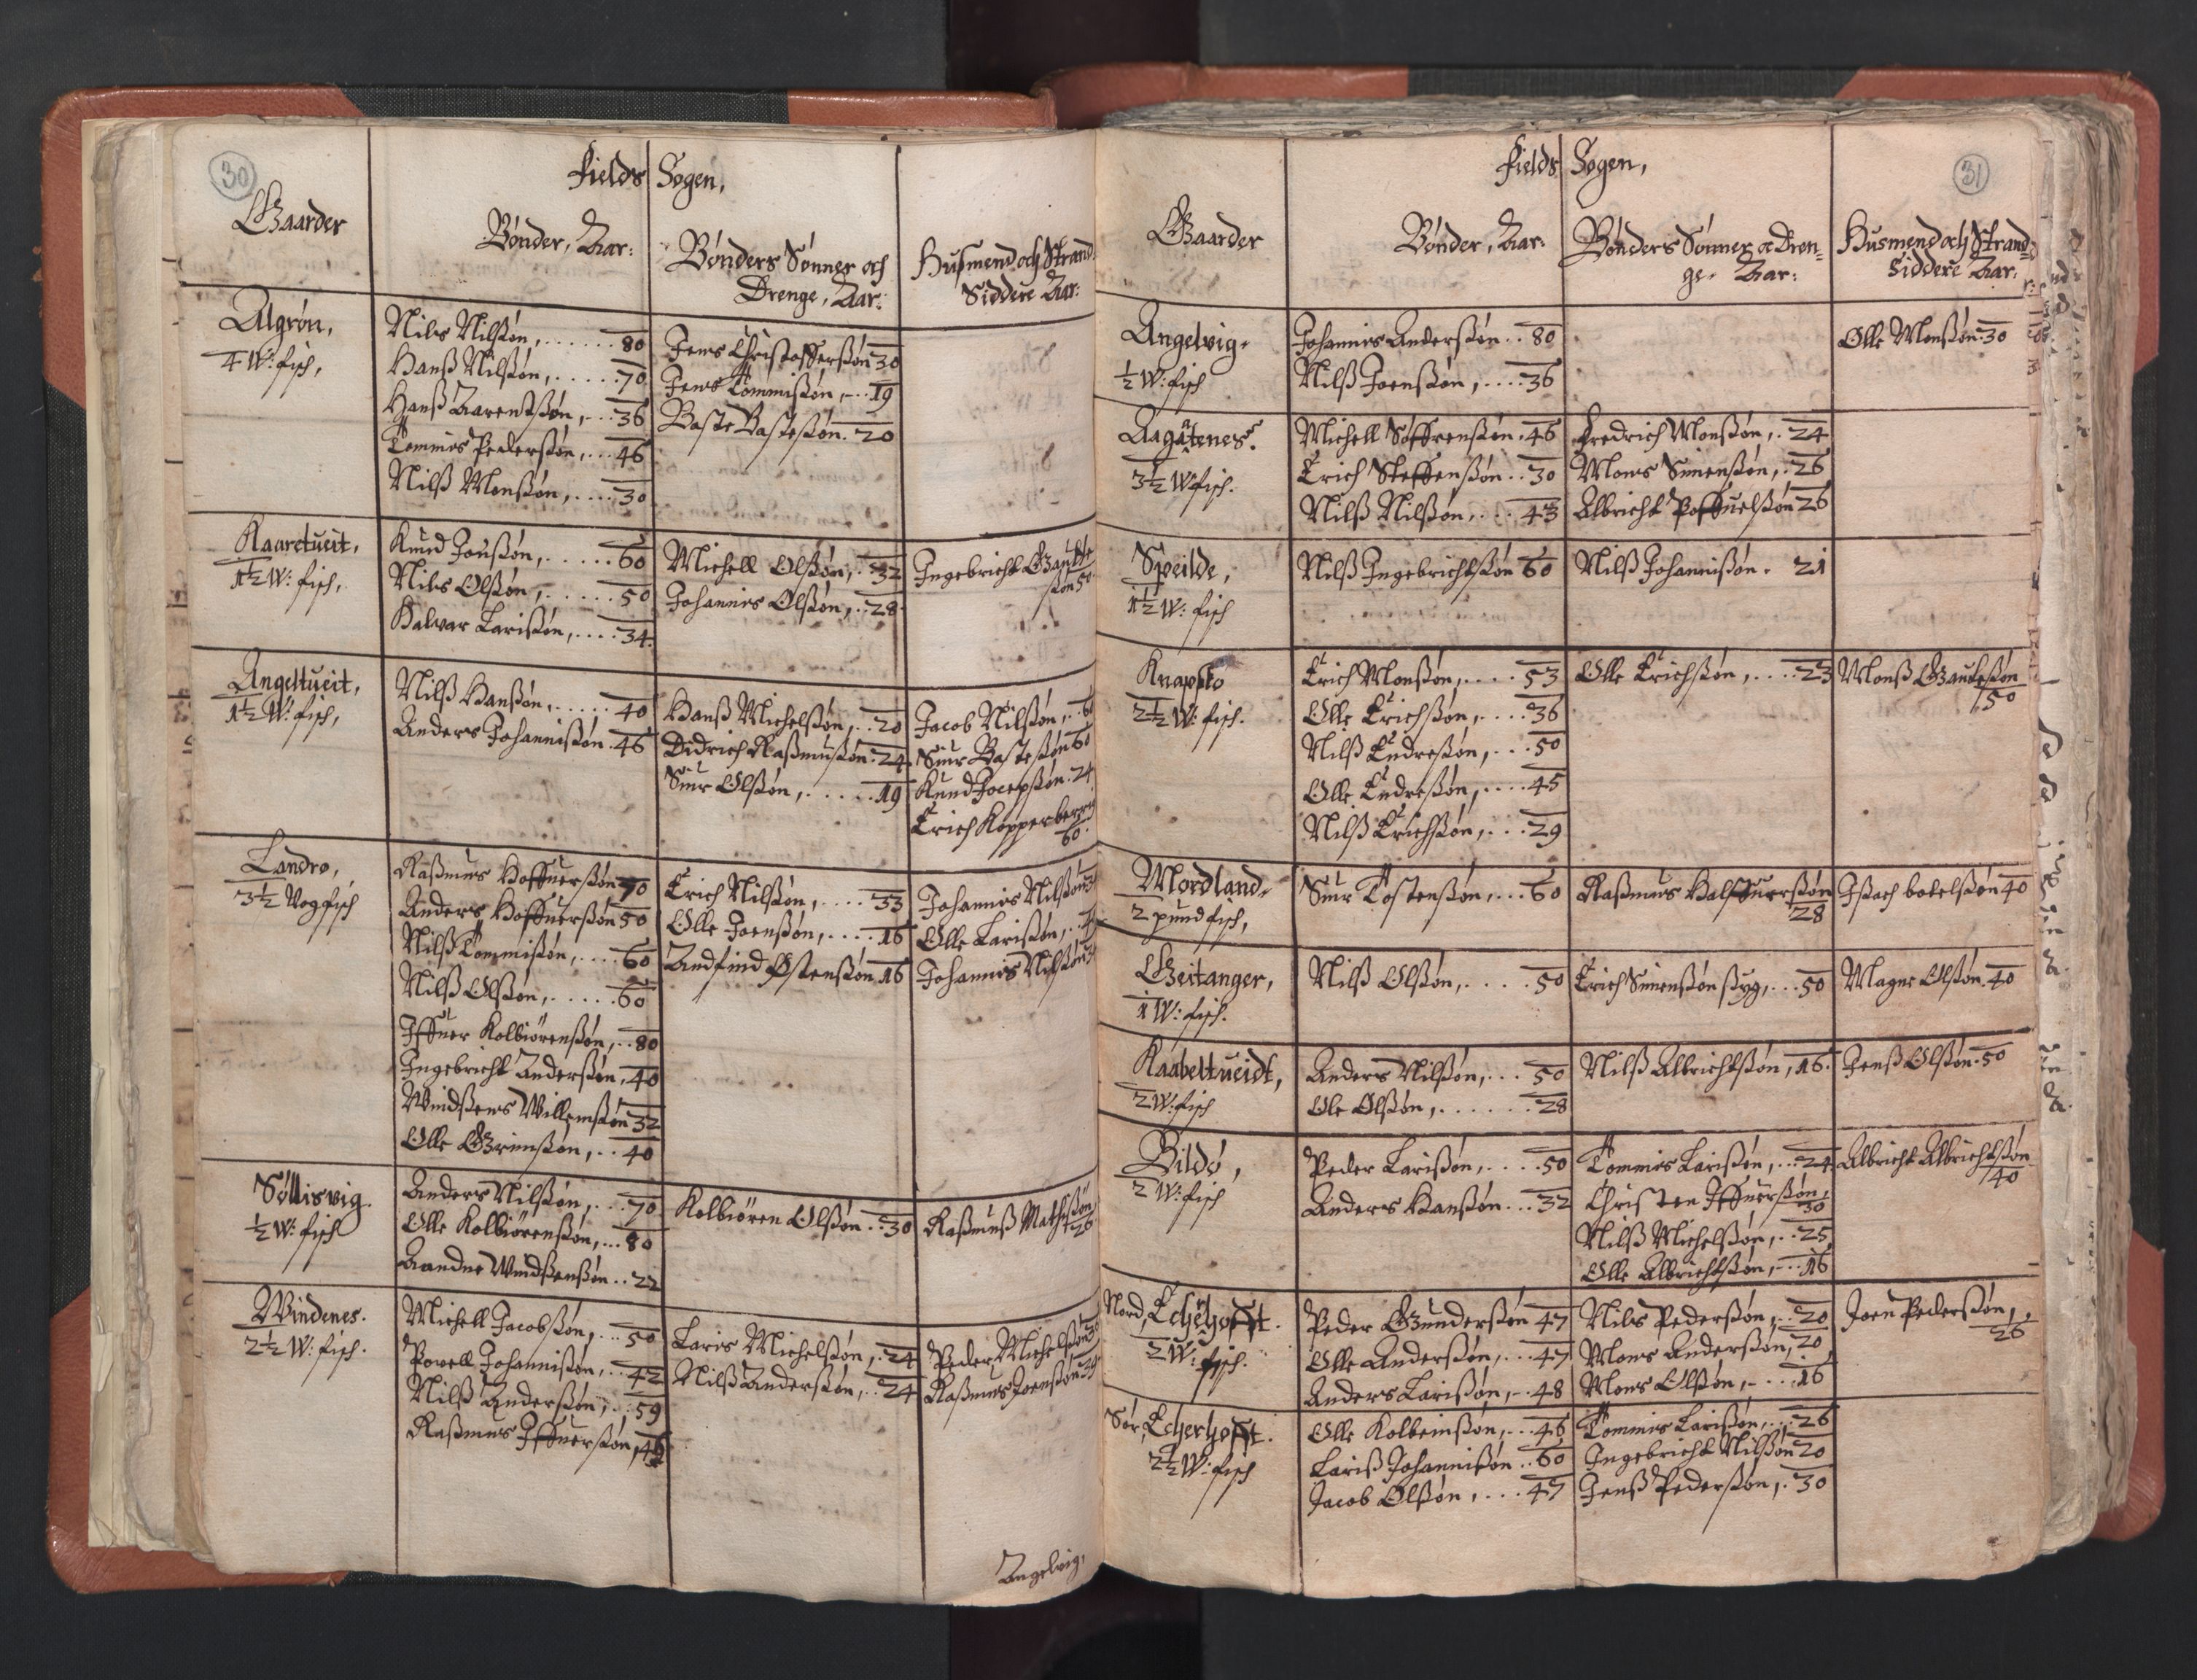 30
Fields Sogen,
Gaarder
Bønder, Aar:
Bønders Sønner och
Drenge, Aar:
Husmend och Strand
Siddere Aar:
Algrøn,
4 W: fisch,
Nils Nilßøn, ...... 80
Hanß Nilßøn, ..... 70
Hanß Aarentßøn, ... 36
Tommis Pederßøn, ... 46
Nilß Monßøn, .... 30
Jens Christofferßøn 30
Jens Tommißøn, ... 19
Baste Basteßøn. 20
Kaartueit,
1½ W: fisch,
Knud Jonßøn, ..... 60
Nils Olßøn, ..... 50
Halvar Larißøn, .... 34
Michell Olßøn, .. 32
Johannis Olßøn, .. 28
Ingebricht Gautte
ßøn 50
Angeltueit,
1½ W: fisch,
Nilß Hanßøn, ..... 40
Anders Johannißøn . 46
Hanß Michelßøn, .. 20
Didrich Raßmußøn . 24
Siur Olßøn, ..... 19
Jacob Nilßøn, .. 60
Siur Basteßøn 60
Knud Jocepßøn . 24
Erich Kopperberrig
60
Landro,
3½ Vog fisch
Raßmus Hoffuerßøn 70
Anders Hoffuerßøn 50
Nilß Tommißøn, .... 60
Nilß Olßøn, ..... 60
Iffuer Kolbiörenßøn, .. 80
Ingebricht Anderßøn, 40
Vindßens Willemßøn 32
Olle Grimßøn, .. 40
Erich Nilßøn, .... 33
Olle Joenßøn, .... 16
Andfind Østenßøn 16
Johannis Nilßøn
Olle Larißøn,
Johannis Nilßøn
Søltisvig.
½ W: fisch
Anders Nilßøn, ... 70
Olle Kolbiörenßøn, ... 80
Aandne Vindßenßøn .. 22
Kolbiören Olßøn .. 30
Raßmuß Mathißøn
26
Windenes.
2½ W: fisch.
Michell Jacobßøn, ... 50
Povell Johannißøn, .. 42
Nilß Anderßøn, ... 59
Raßmus Iffuerßøn, 46
Laris Michelßøn, .. 24
Nilß Anderßøn, .. 24
Peder Michelßøn
Raßmus Joenßøn
Angelvig,
31
Fields Sogen,
Gaarder
Bønder, Aar:
Bønders Sønner oc Dren-
ge. Aar:
Husmend och Strand-
Siddere Aar:
Angelvig.
½ W: fisch
Johannis Anderßøn .. 80
Nilß Joenßøn, .... 36
Olle Monßøn . 30
Aagatenes.
3½ W fisch.
Michell Søffrenßøn . 46
Erich Steffenßøn .. 30
Nilß Nilßøn, ... 43
Fredrich Monßøn, . 24
Mons Simenßøn, . 26
Albricht Poffuelßøn 26
Speilde,
1½ W: fisch
Nilß Ingebrichtßøn 60
Nilß Johannißøn . 21
Knapsto
2½ W: fisch.
Erich Monßøn, .... 53
Olle Erichßøn, .... 36
Nilß Endreßøn, ... 50
Olle Endreßøn, .... 45
Nilß Erichßøn, ... 29
Olle Erichßøn, .... 23
Monß Gauteßøn
50
Mordland.
2 pund fisch,
Siur Tostenßøn, ... 60
Raßmus Halffuerßøn
28
Ißach botelßøn 40
Geitanger,
1 W: fisch.
Nilß Olßøn, .... 50
Erich Simenßøn ßyg, ... 50
Magne Olßøn . 40
Kaabeltueidt,
2 W: fisch
Anders Nilßøn, ... 50
Ole Olßøn, ...... 28
Nilß Albrichtßøn, 16.
Jenß Olßøn . 50
Bildö,
2 W: fisch
Peder Larißøn, .... 50
Anders Hanßøn ... 32
Tommis Larißøn, .. 24
Christen Iffuerßøn,
30
Nilß Michelßøn, .. 25
Olle Albrichtßøn, ... 16
Albricht Albrichtßøn
40
Nord, Echerhofft.
2 W: fisch.
Peder Gunderßøn 47
Olle Anderßøn, ... 47
Anders Larißøn, .. 48
Nils Pederßøn, .. 20
Mons Anderßøn, 20
Mons Olßøn, .... 16
Joen Pederßøn,
26
Sør, Echerhofft.
2½ W: fisch
Olle Kolbeinßøn, ... 46
Lariß Johannißøn .. 60
Jacob Olßøn, .... 47
Tommis Larißøn, ... 26
Ingebricht Nilßøn 20
Jenß Pederßøn, . 30